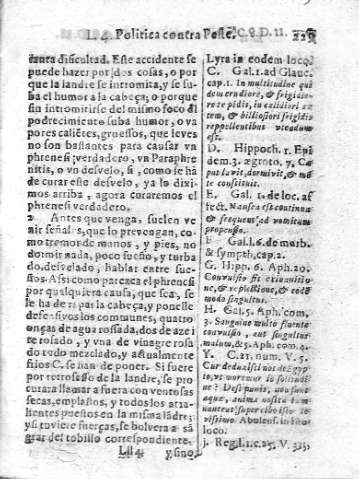 L. 4. Politica contra Peste. C. 9. D. 11.
tanta dificultad. Este accidente se
puede hazer por dos cosas, o por
que la landre se intromita, y se su-
ba el humor a la cabeça; o porque
sin intromitirse del mismo foco di
podrecimiento suba humor, o va
pores caliẽtes, gruessos, que leves
no son bastantes para causar vn
phrenesi verdadero, vn Paraphre
nitis, o vn desvelo, si, como se hà
de curar este desvelo, ya lo dixi-
mos arriba, agora curaremos el
phrenesi verdadero.
2 Antes que venga, suelen ve
nir señales, que lo prevengan, co-
mo tremor de manos, y pies, no
dormir nada, poco sueño, y turba
do, desvelado, hablar entre sue-
ños. Assi como parezca el phrenesi
por qualquiera causa, que sea, se
le ha de rapar la cabeça, y ponelle
defensivos los comunes, quatro
onças de agua rosada, dos de azei
te rosado, y vna de vinagre rosa
do todo mezclado, y actualmente
frios C. se han de poner. Si fuere
por retrosesso de la landre, se pro
curara llamar a fuera con ventosas
secas, emplastos, y todos los atra-
hentes puestos en la misma lãdre;
y si tuviere fuerças, se bolvera a sã
grar del tobillo correspondiente,
Lll 4 y sino
Lyra in eodem loco.
C. Gal. 1. ad Glauc.
cap. 1. In multitudine qui
dem erudiore, & frigidio-
re tepidis, in calidiori au
tem, & biliosiori frigidis
repellentibus vtendum
est.
D. Hippoch. 1. Epi
dem. 3. ægroto. 7. Ca-
put lavit, dormivit, & mẽ
te constituit.
E. Gal. 1. de loc. af-
fect. Nausea est continua
& frequens ad vomitum
propensio.
F Gal. l. 6. de morb.
& sympth, cap. 2.
G. Hipp. 6. Aph. 20.
Convulsio fit exinanitio-
ne, & repletione, & eodẽ
modo singultus.
H. Gal. 5. Aph. com.
3. Sanguine multo fluente
convulsio, aut singultus
malum, & 5. Aph. com. 4.
Y C. 21. num. V. 5.
Cur eduxisti nos de Ægyp-
to, vt moremur in solitudi
ne? Deest panis, non sunt
aquæ, anima nostra iam
nauseat super cibo isto le-
vissimo. Abulens. in hunc
loco.
j. Reg. l. 1. c. 25. V. 325,